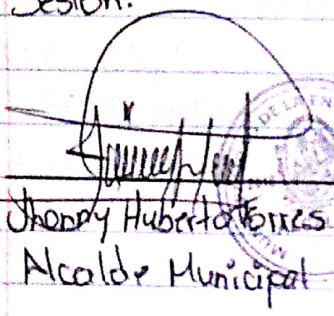 Sesión.
Jhonny Huberto Torres
Alcalde Municipal